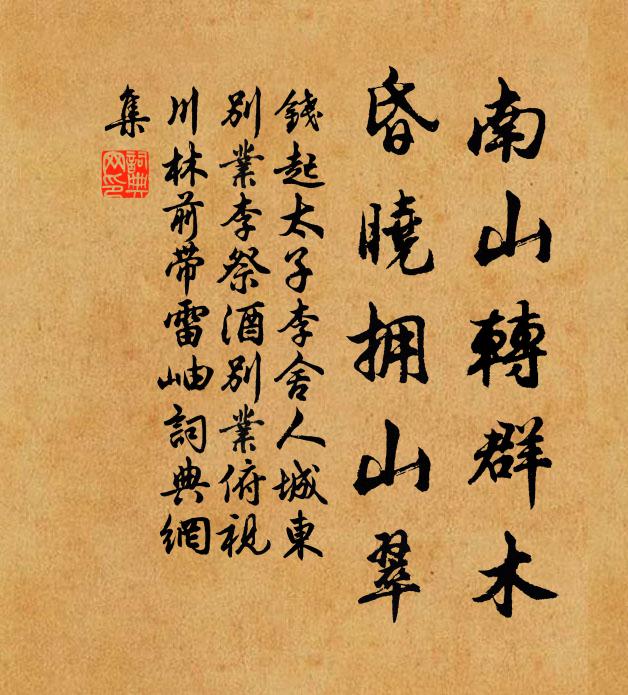 南山轉群木
昏曉拥山翠
錢起太子李舍人城東
别業李祭酒别業俯視
川林前带雷岫詞典網
集
詞典
网印